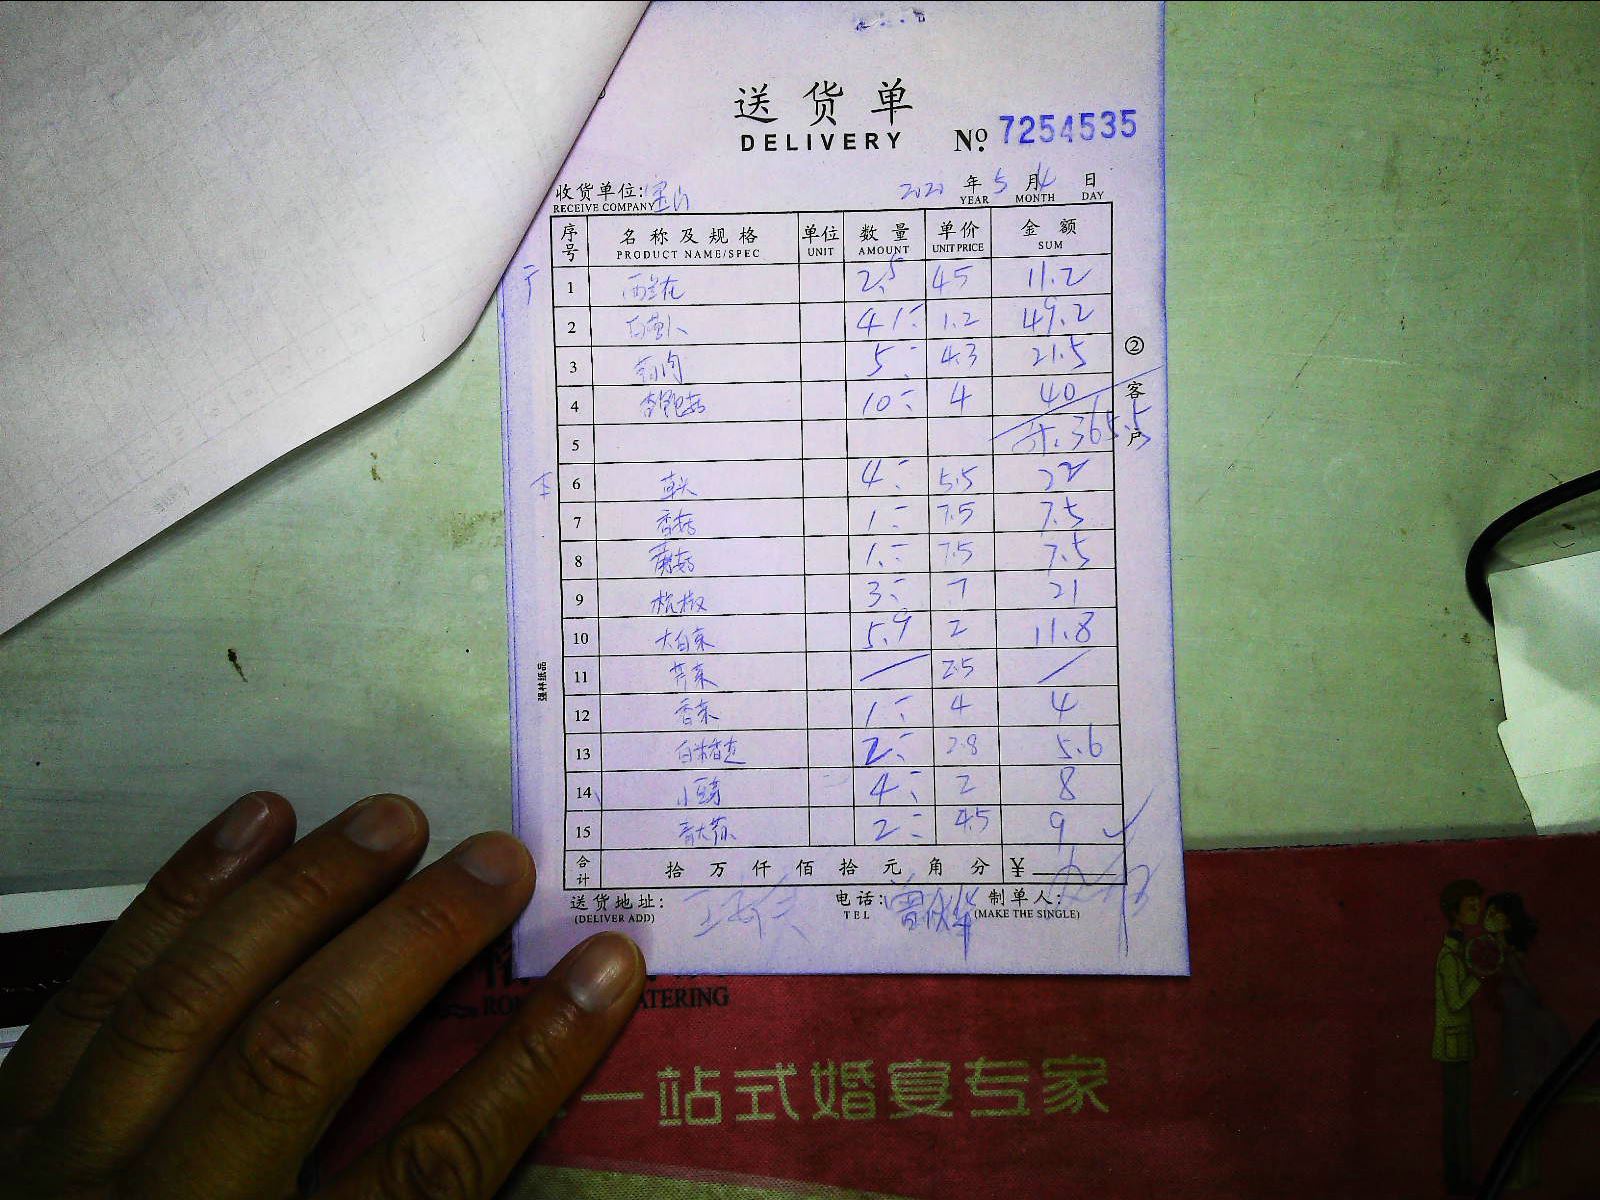 送货单
DELIVERY № 7254535
收货单位: 2020 年 5 月 4 日
RECEIVE COMPANY YEAR MONTH DAY
序号 名称及规格 单位 数量 单价 金额
PRODUCT NAME/SPEC UNIT AMOUNT UNIT PRICE SUM
1 西兰花 2.5 45 11.2
2 白萝卜 41 1.2 49.2
3 5 4.3 21.5
4 杏鲍菇 10 4 40
5 365.5
6 4 5.5 22
7 香菇 1 7.5 7.5
8 蘑菇 1 7.5 7.5
9 杭椒 3 7 21
10 大白菜 5.9 2 11.8
11 芹菜 — 2.5 —
12 香菜 1 4 4
13 2 2.8 5.6
14 小豆芽 4 2 8
15 2 4.5 9
合计 拾 万 仟 佰 拾 元 角 分 ¥
送货地址: 电话: 制单人:
(DELIVER ADD) TEL (MAKE THE SINGLE)
② 客户
强林纸品
ATERING
一站式婚宴专家